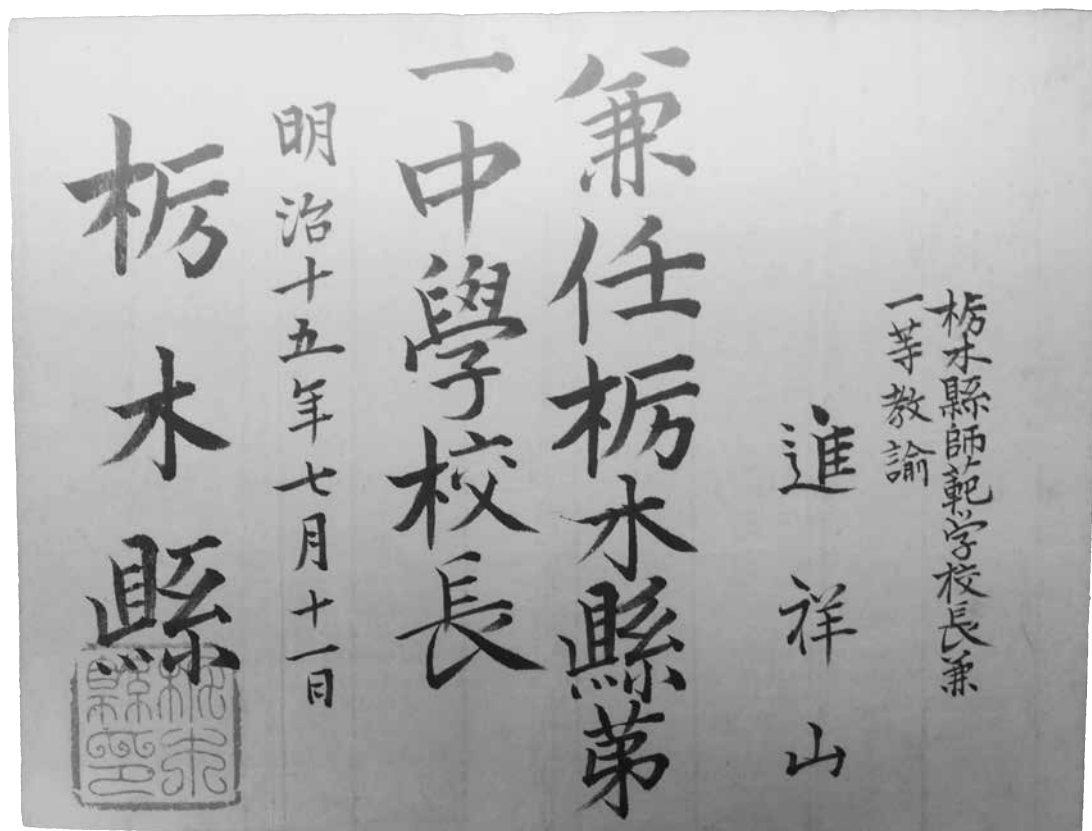 栃木縣師範学校長兼
一等教諭
進祥山
兼任栃木縣第
一中學校長
明治十五年七月十一日
栃木縣
栃木縣印